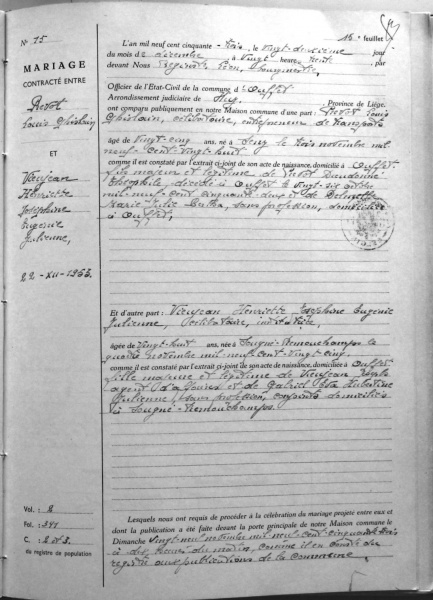 N° 75
MARIAGE
CONTRACTÉ ENTRE
Pirot
Louis Ghislain
ET
Vieujean
Henriette
Joséphine
Eugénie
Julienne,
22-XII-1953.
Vol. : 2
Fol. : 341
C. : 2 et 3.
du registre de population
16e feuillet
L'an mil neuf cent cinquante-trois, le vingt-deuxième jour
du mois de décembre, à vingt heures trente,
devant Nous Léon, Bourgmestre,
Officier de l'Etat-Civil de la commune d'Ouffet
Arrondissement judiciaire de Huy, Province de Liège.
ont comparu publiquement en Maison commune d'une part : Pirot Louis
Ghislain, célibataire, entrepreneur de transports
âgé de vingt-cinq ans, né à le trois novembre mil
neuf cent vingt-huit
comme il est constaté par l'extrait ci-joint de son acte de naissance, domicilié à Ouffet
fils majeur et légitime de Pirot Dieudonné
Théophile, décédé à Ouffet le vingt-six
mil neuf cent cinquante-deux et de
Marie Julie, sans profession, domiciliée
à Ouffet,
Et d'autre part : Vieujean Henriette Joséphine Eugénie
Julienne, célibataire, institutrice,
âgée de vingt-huit ans, née à Sougné-Remouchamps le
quatre novembre mil neuf cent vingt-cinq
comme il est constaté par l'extrait ci-joint de son acte de naissance, domicilié à Ouffet
fille majeure et légitime de Vieujean
agent et de Gabriel Hubertine
Julienne, sans profession, conjoints domiciliés
à Sougné-Remouchamps.
Lesquels nous ont requis de procéder à la célébration du mariage projeté entre eux et
dont la publication a été faite devant la porte principale de notre Maison commune le
Dimanche vingt-neuf novembre mil neuf cent cinquante-trois
à dix heures du matin, comme il en conste du
registre aux publications de la commune